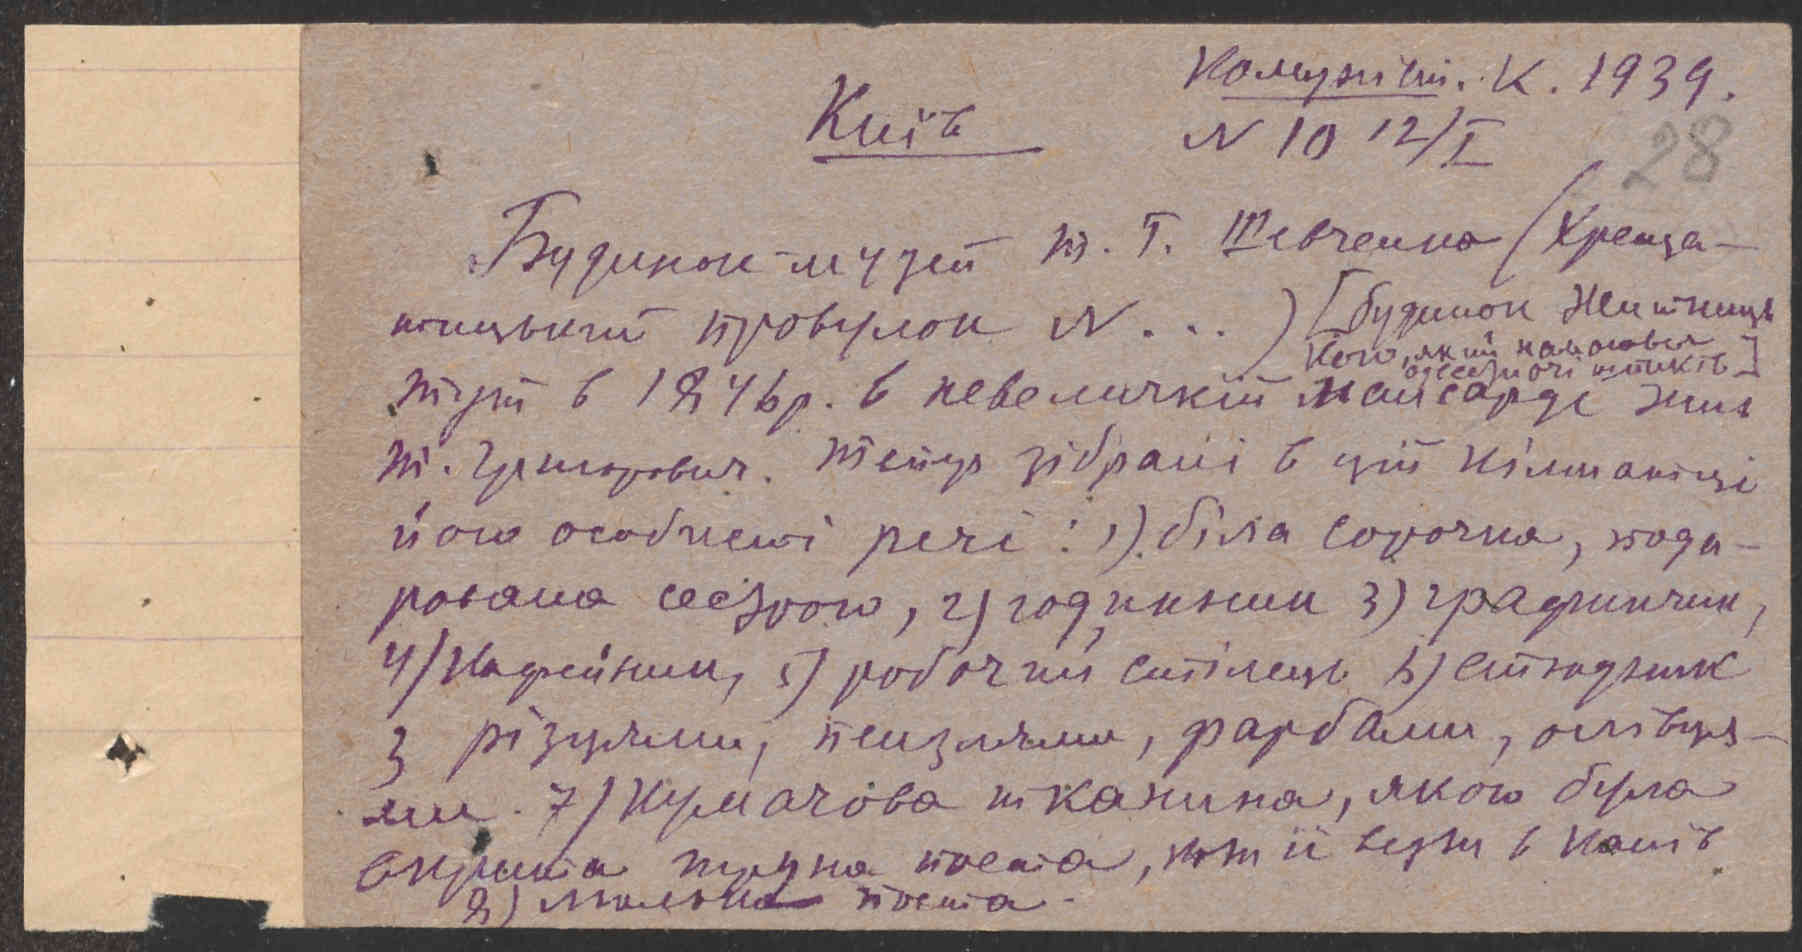 Комуніст. К. 1939.
Київ
N 10 12/I
28
Будинок-музей Т. Г. Шевченко (Хреща-
тицький провулок N ...) [будинок Житниць
кого, який
Тут в 1846 р. в невеличкій мансарді жив
Т. Григорович. Тепер зібрані в цій кімнатці
його особисті речі: 1) біла сорочка, пода-
рована сестрою, 2) годинник 3) графинчик,
4) Кофейник, 5) робочий стілець 6) етюдник
з різцями, пензлями, фарбами, олівця-
ми. 7) Кумачова тканина, якою була
вкрита труна поета, коли її везли в Канів
8) люлька поета.